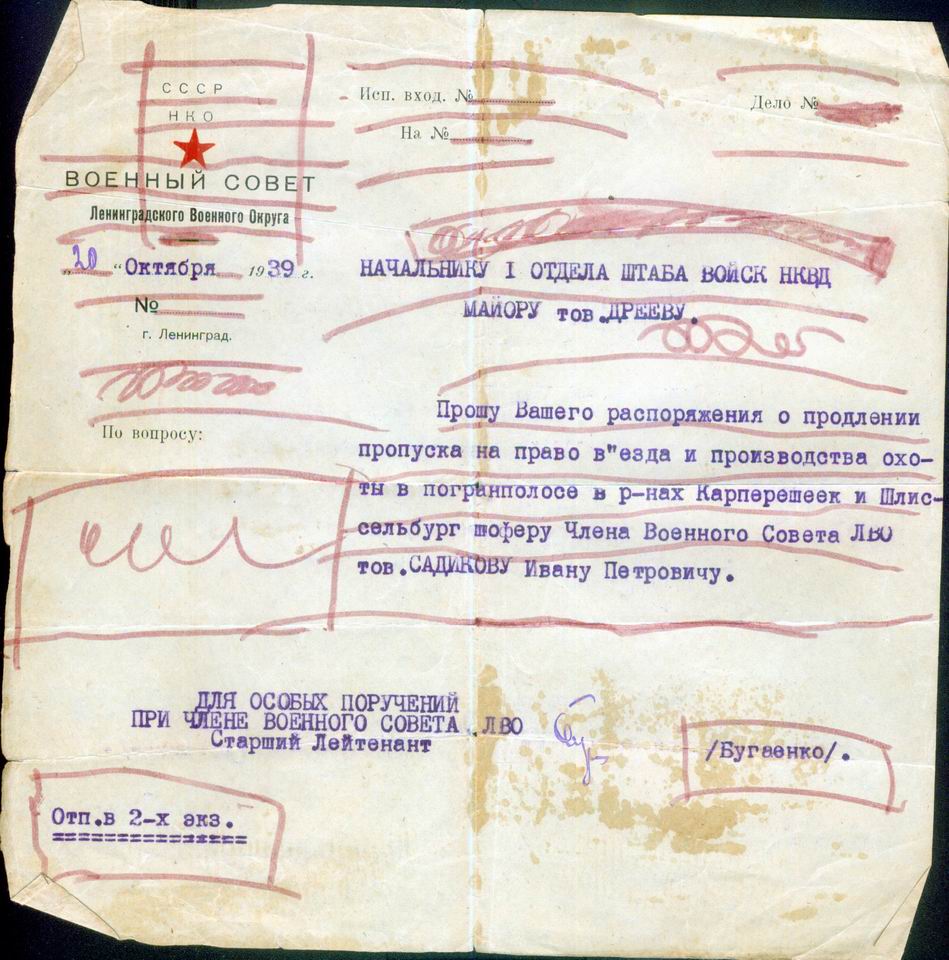 СССР
НКО
ВОЕННЫЙ СОВЕТ
Ленинградского Военного Округа
„20“ Октября 1939 г.
№
г. Ленинград.
По вопросу:
Исп. вход. №
На №
Дело №
НАЧАЛЬНИКУ I ОТДЕЛА ШТАБА ВОЙСК НКВД
МАЙОРУ тов.ДРЕЕВУ.
Прошу Вашего распоряжения о продлении
пропуска на право в"езда и производства охо-
ты в погранполосе в р-нах Карперешеек и Шлис-
сельбург шоферу Члена Военного Совета ЛВО
тов.САДИКОВУ Ивану Петровичу.
ДЛЯ ОСОБЫХ ПОРУЧЕНИЙ
ПРИ ЧЛЕНЕ ВОЕННОГО СОВЕТА ЛВО
Старший Лейтенант
/Бугаенко/.
Отп.в 2-х экз.